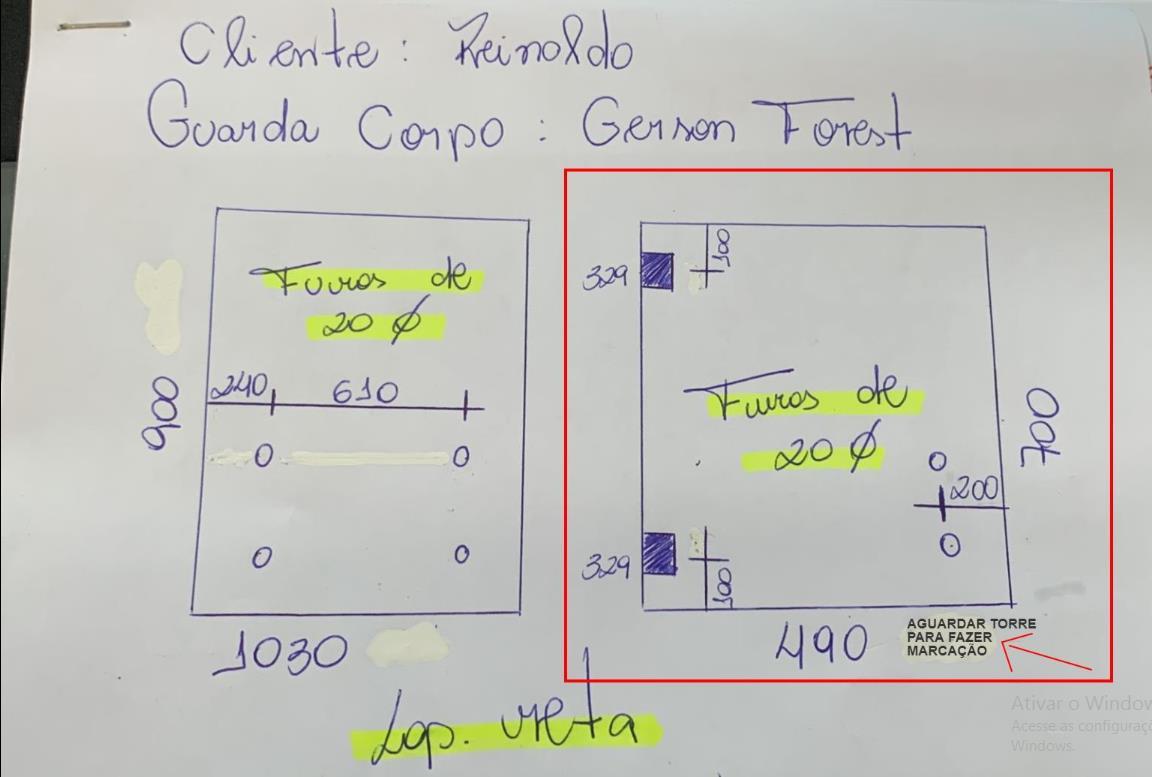 Cliente: Reinoldo
Guarda Corpo: Gerson Forest
Furos de
20 Ø
240 610
900
1030
329
100
Furos de
20 Ø
700
200
329
100
490
AGUARDAR TORRE
PARA FAZER
MARCAÇÃO
Lap. reta
Ativar o Window
Acesse as configuraç
Windows.